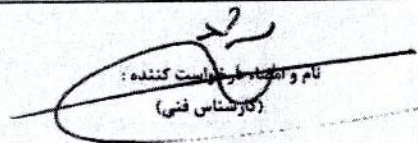 نام و امضاء درخواست کننده :
(کارشناس فنی)